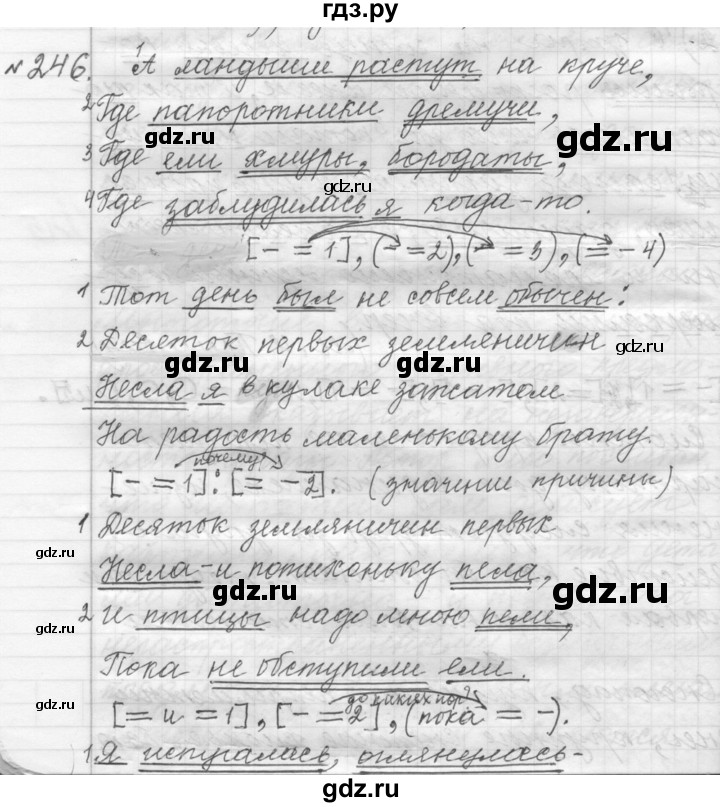 гдз.ру
№246. ¹А ландыши растут на круче,
2 Где папоротники дремучи,
gdz.ru gdz.ru
3 Где ели хмуры, бородаты,
gdz.ru
4 Где заблудилась я когда-то.
[- = 1], (- = 2), (- = 3), (= - 4)
1 Тот день был не совсем обычен:
2 Десяток первых земляничин
gdz.ru gdz.ru
Несла я в кулаке зажатом
На радость маленькому брату.
почему?
[- = 1]: [= - 2]. (значении причины)
1 Десяток земляничин первых
gdz.ru gdz.ru
Несла - и потихоньку пела,
gdz.ru gdz.ru
2 И птицы надо мною пели,
gdz.ru
Пока не обступили ели.
до каких пор?
gdz.ru gdz.ru
[= и = 1], [- = 2], (пока = -).
1 Я испугалась, оглянулась-
gdz.ru gdz.ru